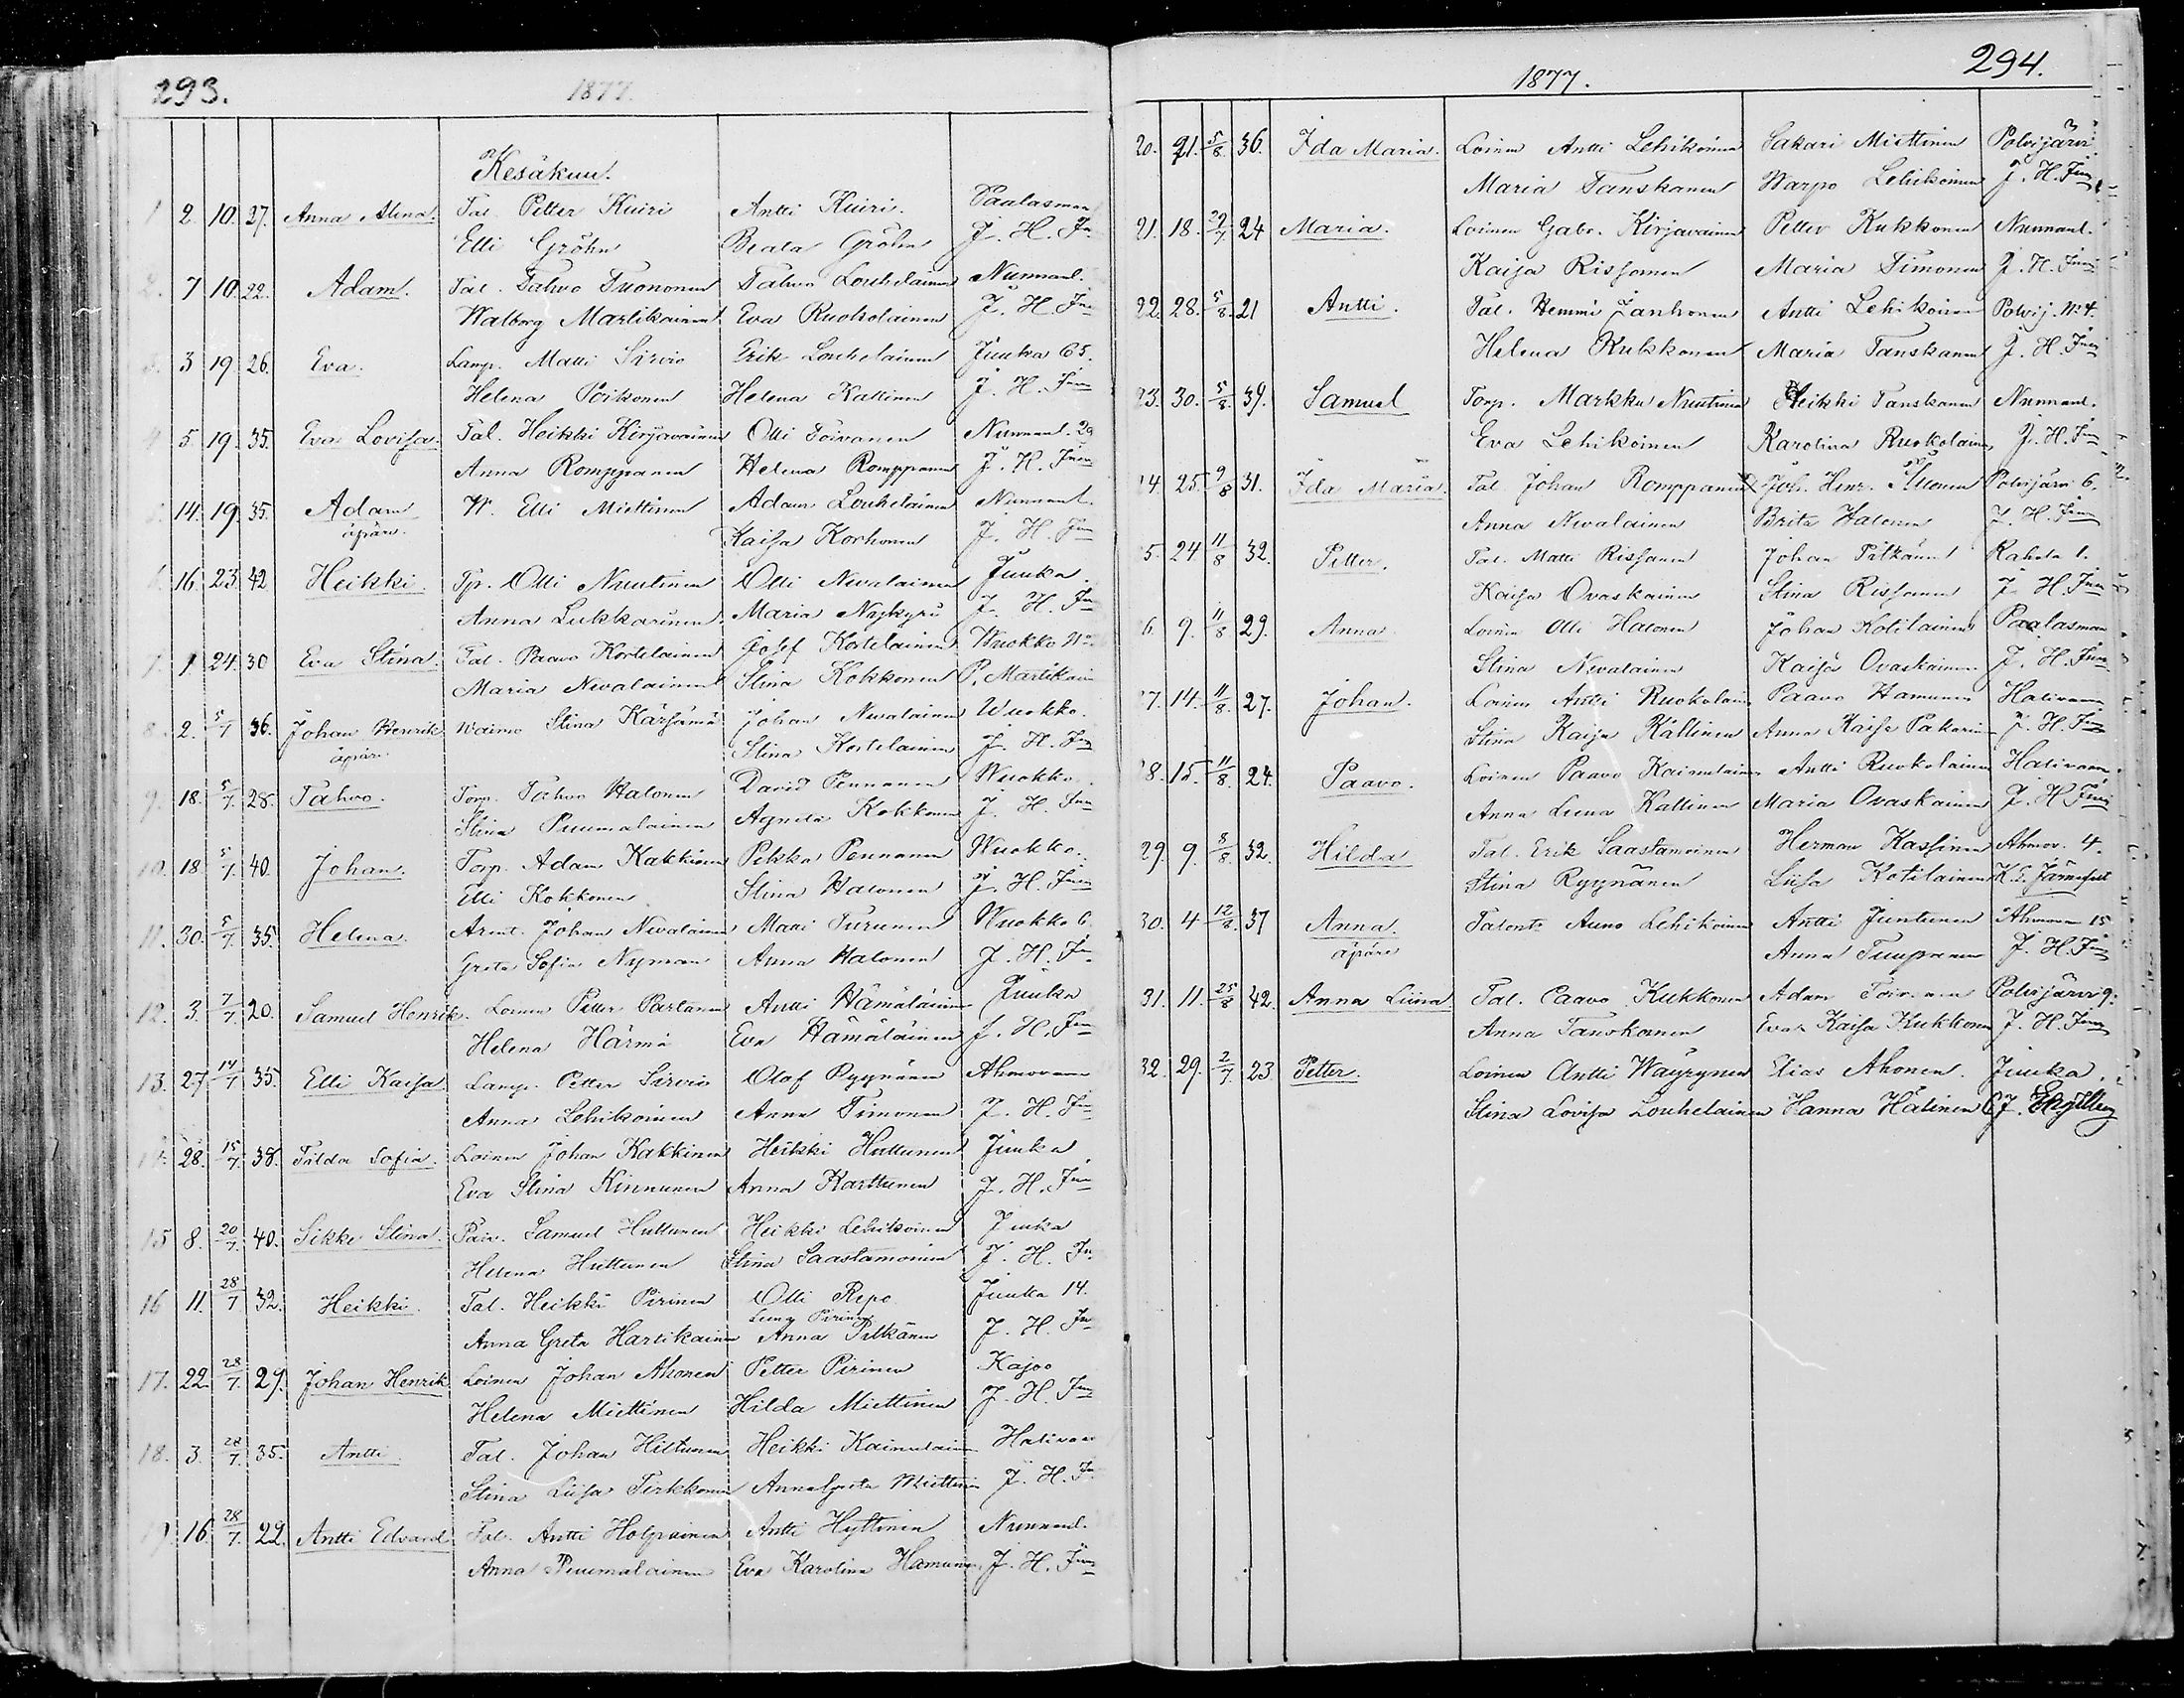 293.
1877.
Kesäkuu.
1 2. 10. 27. Anna Alina. Tal. Petter Kuiri Antti Kuiri. Paalasmaa
Elli Gröhn Beata Gröhn J. H. Jun
2. 7 10. 22. Adam. Tal. Tahvo Tuononen Tahvo Louhelainen Nunnanl.
Walborg Martikainen Eva Ruokolainen J. H. Jun
3. 3 19 26. Eva. Lamp. Matti Sirviö Erik Louhelainen Juuka 65.
Helena Poikonen Helena Kattinen J. H. Jun
4 5. 19. 35. Eva Lovisa. Tal. Heikki Kirjavainen Olli Toivanen Nunnanl. 29
Anna Romppanen Helena Romppanen J. H. Jun
5. 14. 19. 35. Adam W. Elli Miettinen Adam Louhelainen Nunnanl.
äpärä. Kaisa Korhonen J. H. Jun
6. 16. 23. 42 Heikki. Tp. Olli Nuutinen Olli Nevalainen Juuka.
Anna Lukkarinen. Maria Nykyri J. H. Jun
7. 1 24. 30 Eva Stina. Tal. Paavo Kortelainen Josef Kortelainen Wuokko No
Maria Nevalainen Stina Kokkonen P. Martikain
8. 2. 5/7 36. Johan Henrik Waimo Stina Kärsämä Johan Nevalainen Wuokko.
äpärä. Stina Kortelainen J. H. Jun
9. 18. 5/7. 28. Tahvo. Torp. Tahvo Halonen David Pennanen Wuokko.
Stina Puumalainen Agneta Kokkonen J. H. Jun
10. 18. 5/7. 40. Johan. Torp. Adam Kakkinen Pekka Pennanen Wuokko.
Elli Kokkonen Stina Halonen J. H. Jun
11. 30. 5/7. 35. Helena. Arent. Johan Nevalainen Matti Turunen Wuokko 6
Greta Sofia Nyman Anna Halonen J. H. Jun
12. 3. 7/7. 20. Samuel Henrik. Loinen Petter Partanen Antti Hämäläinen Juuka
Helena Härmä Eva Hämäläinen J. H. Jun
13. 27. 14/7 35. Elli Kaisa Lamp. Petter Sirviö Olof Ryynänen Ahmovaara
Anna Lehikoinen Anna Timonen J. H. Jun
14. 28. 15/7. 38. Tilda Sofia. Loinen Johan Kakkinen Heikki Huttunen Juuka
Eva Stina Kinnunen Anna Karttunen J. H. Jun
15 8. 20/7. 40. Sikke Stina. Päiv. Samuel Huttunen Heikki Lehikoinen Juuka
Helena Huttunen Stina Saastamoinen J. H. Jun
16 11. 28/7 32. Heikki. Tal. Heikki Pirinen Olli Repo Juuka 14.
Leena Pirinen
Anna Greta Hartikainen Anna Pitkänen J. H. Jun
17. 22. 28/7. 29. Johan Henrik Loinen Johan Ahonen Petter Pirinen Kajoo
Helena Miettinen Hilda Miettinen J. H. Jun
18. 3. 28/7. 35. Antti. Tal. Johan Hiltunen Heikki Kainulainen Halivaara
Stina Liisa Tirkkonen Anna Greta Miettinen J. H. Jun
19. 16. 28/7. 22. Antti Edvard Tal. Antti Holpainen Antti Hyttinen Nunnanl.
Anna Puumalainen Eva Karolina Hamunen. J. H. Jun
294.
1877.
20. 21. 5/8 36. Ida Maria. Loinen Antti Lehikoinen Sakari Miettinen Polvijärvi 3
Maria Tanskanen Warpo Lehikoinen J. H. Jun
21. 18. 29/7 24 Maria. Loinen Gabr. Kirjavainen Petter Kukkonen Nunnanl.
Kaisa Rissanen Maria Timonen J. H. Jun
22. 28. 5/8. 21 Antti. Tal. Hemmi Janhonen Antti Lehikoinen Polvij. No 4.
Helena Kukkonen Maria Tanskanen J. H. Jun
23. 30. 5/8. 39. Samuel Torp. Markku Nuutinen Heikki Tanskanen Nunnanl.
Eva Lehikoinen Karolina Ruokolainen J. H. Jun
24. 25. 9/8 31. Ida Maria. Tal. Johan Romppanen Joh. Henr. Polvijärvi 6.
Anna Nevalainen Brita Halonen J. H. Jun
5. 24 11/8 32. Petter. Tal. Matti Rissanen Johan Pitkänen Rahola 1.
Kaisa Ovaskainen Stina Rissanen J. H. Jun
6. 9. 11/8 29. Anna Loinen Olli Halonen Johan Kotilainen Paalasmaa
Stina Nevalainen Kaisa Ovaskainen J. H. Jun
27. 14. 11/8. 27. Johan. Loinen Antti Ruokolainen Paavo Hamunen Halivaara
Stina Kaisa Kattinen Anna Kaisa Pakarinen J. H. Jun
28. 15. 11/8. 24. Paavo. Loinen Paavo Kainulainen Antti Ruokolainen Halivaara.
Anna Leena Kattinen Maria Ovaskainen J. H. Jun
29. 9. 8/8. 32. Hilda Tal. Erik Saastamoinen Herman Kassinen Ahmov. 4.
Stina Ryynänen Liisa Kotilainen K. T. Järnefelt
30. 4 12/8. 37 Anna. Talont. Auno Lehikoinen Antti Juntunen Ahmova 15
äpärä Anna Tuupanen J. H. Jun
31. 11. 25/8 42. Anna Liina Tal. Paavo Kukkonen Adam Toivanen Polvijärvi 9.
Anna Tanskanen Eva Kaisa Kukkonen J. H. Jun
32. 29. 2/7. 23 Petter. Loinen Antti Wäyrynen Elias Ahonen. Juuka.
Stina Lovisa Louhelainen Hanna Hätinen